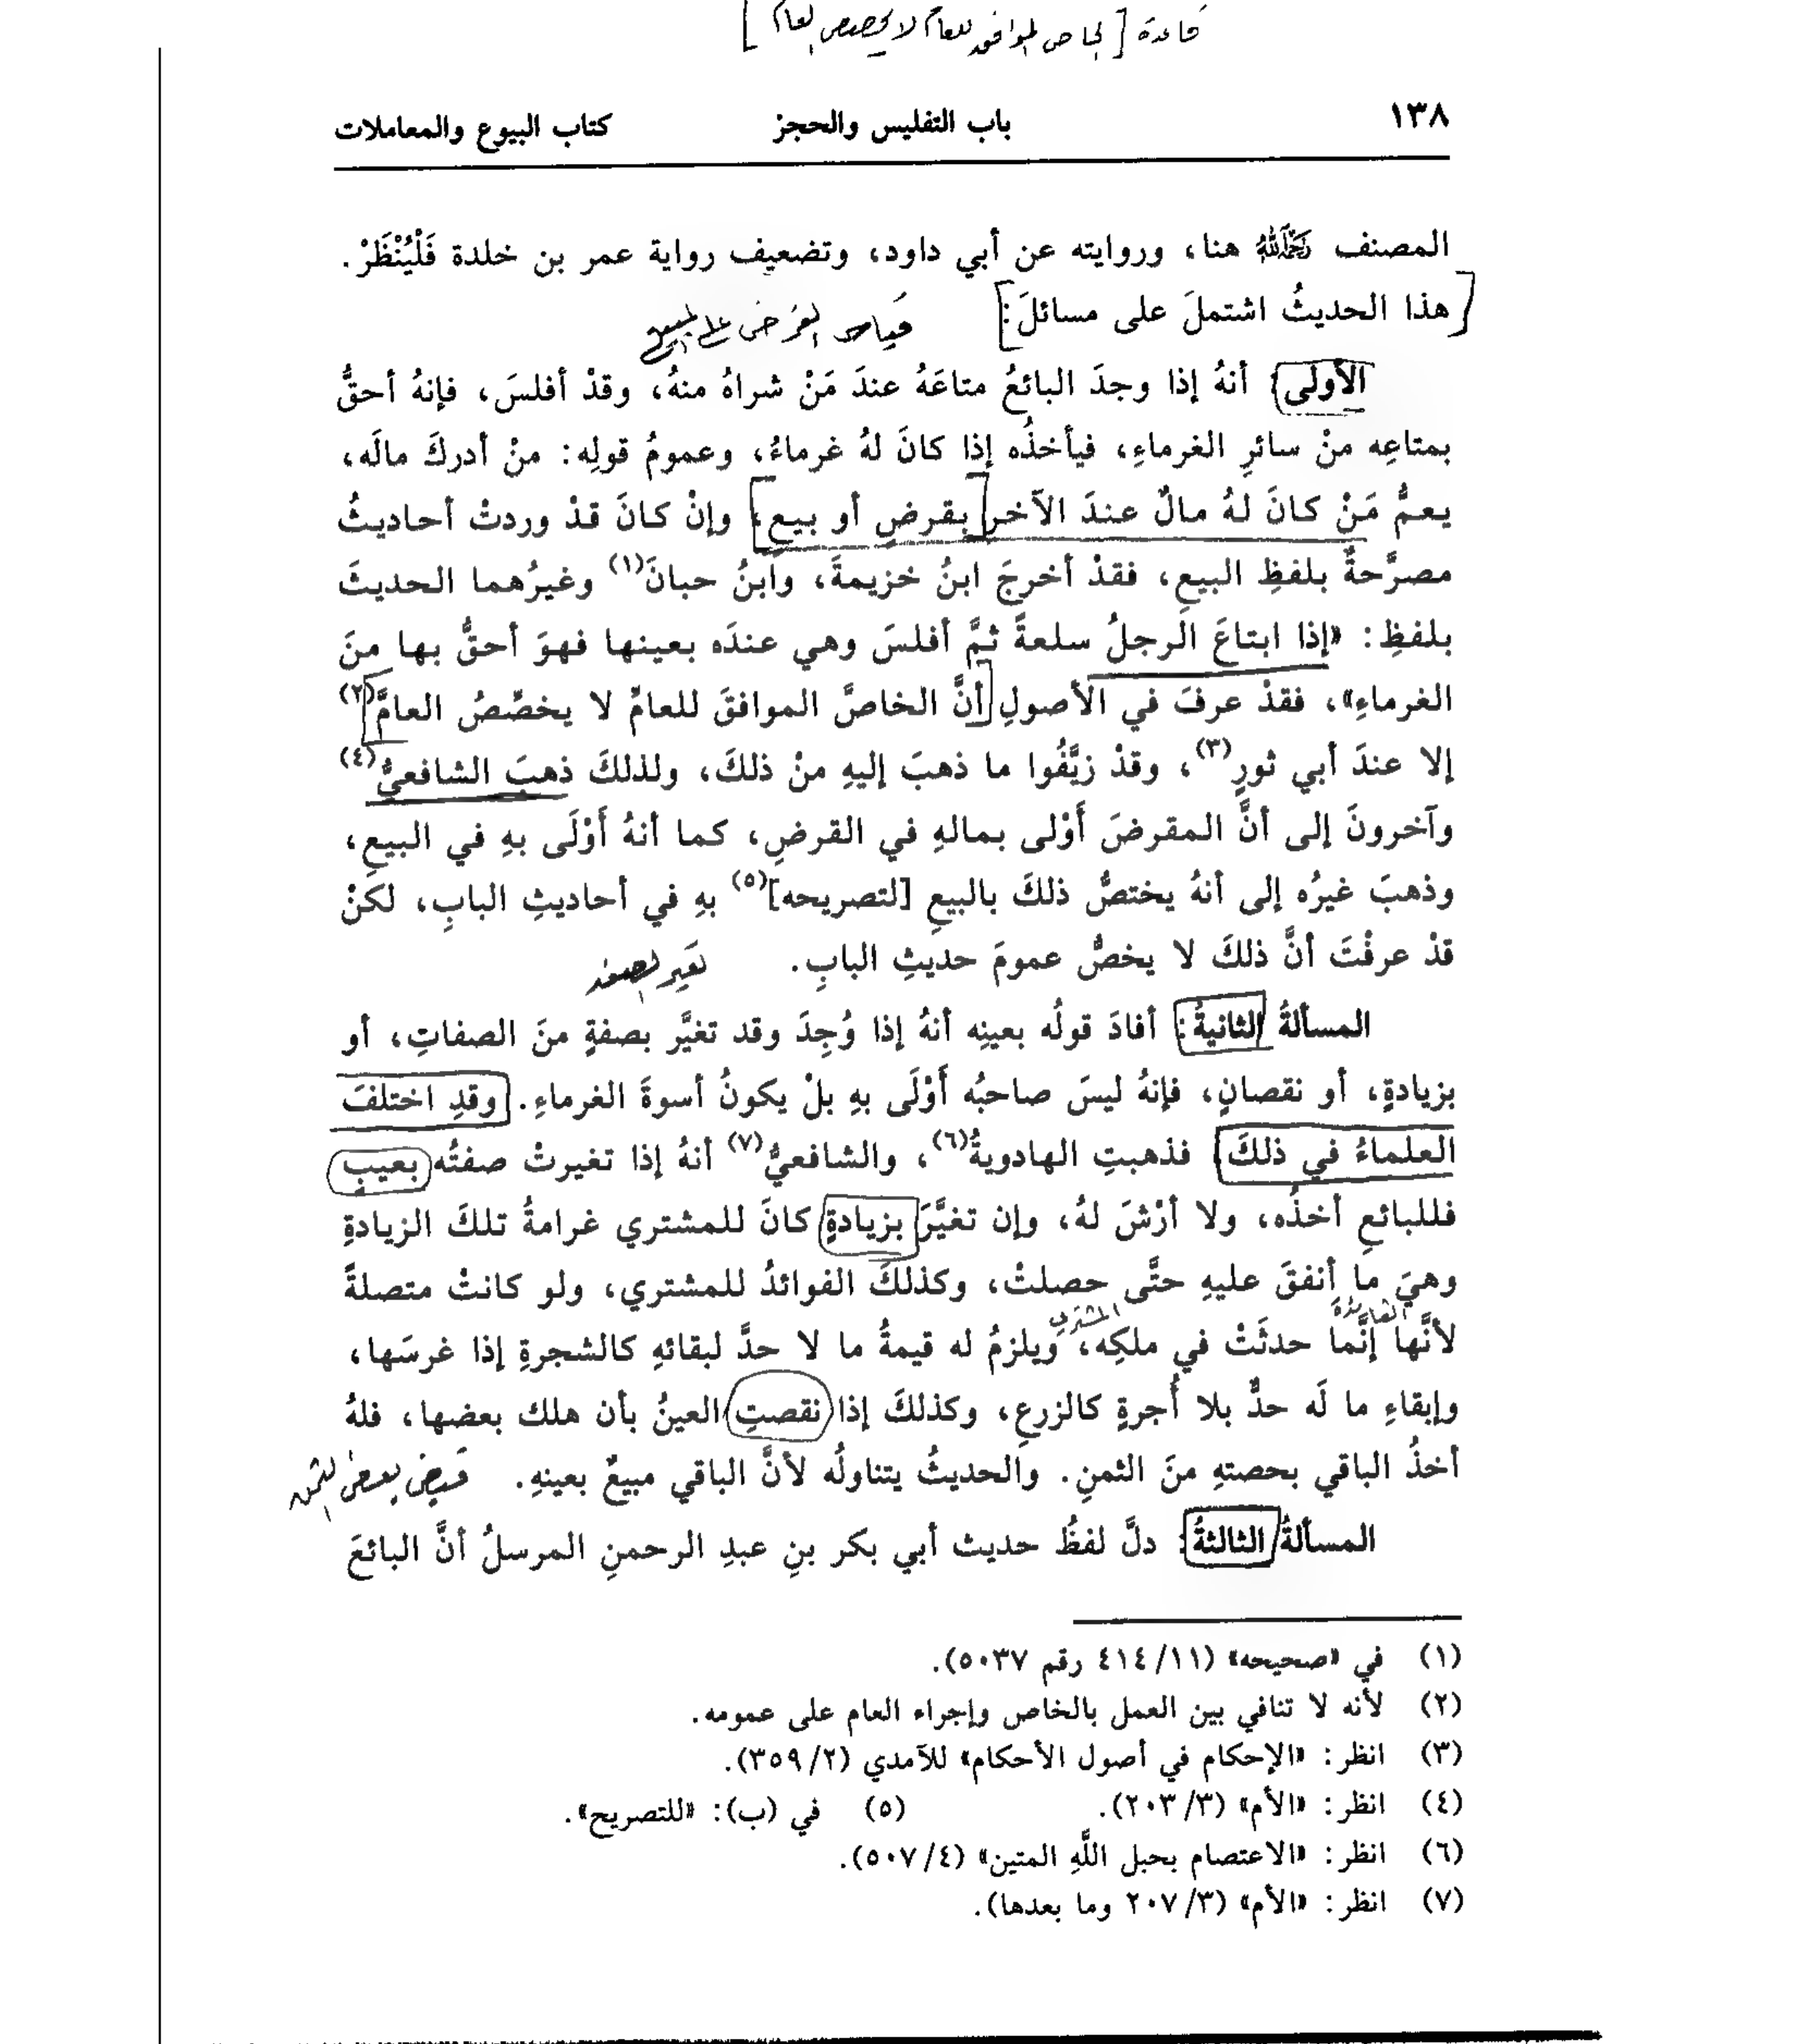 قاعدة [الخاص الموافق للعام لا يخصص العام]
١٣٨ باب التفليس والحجز كتاب البيوع والمعاملات
المصنف رَحِمَهُ اللَّهُ هنا، وروايته عن أبي داود، وتضعيف رواية عمر بن خلدة فَلْيُنْظَرْ.
[هذا الحديثُ اشتملَ على مسائلَ:] قياس القرض على البيع
الأولى: أنهُ إذا وجدَ البائعُ متاعَهُ عندَ مَنْ شراهُ منهُ، وقدْ أفلسَ، فإنهُ أحقُّ
بمتاعِه منْ سائرِ الغرماءِ، فيأخذُه إذا كانَ لهُ غرماءُ، وعمومُ قولِه: منْ أدركَ مالَه،
يعمُّ مَنْ كانَ لهُ مالٌ عندَ الآخرِ [بقرضٍ أو بيعٍ]، وإنْ كانَ قدْ وردتْ أحاديثُ
مصرِّحةٌ بلفظِ البيعِ، فقدْ أخرجَ ابنُ خزيمةَ، وابنُ حبانَ(١) وغيرُهما الحديثَ
بلفظِ: «إذا ابتاعَ الرجلُ سلعةً ثمَّ أفلسَ وهي عندَه بعينها فهوَ أحقُّ بها منَ
الغرماءِ»، فقدْ عرفَ في الأصولِ [أنَّ الخاصَّ الموافقَ للعامِّ لا يخصِّصُ العامَّ](٢)
إلا عندَ أبي ثورٍ(٣)، وقدْ زيَّفُوا ما ذهبَ إليهِ منْ ذلكَ، ولذلكَ ذهبَ الشافعيُّ(٤)
وآخرونَ إلى أنَّ المقرضَ أَوْلى بمالهِ في القرضِ، كما أنهُ أَوْلَى بهِ في البيعِ،
وذهبَ غيرُه إلى أنهُ يختصُّ ذلكَ بالبيعِ [لتصريحه](٥) بهِ في أحاديثِ البابِ، لكنْ
قدْ عرفْتَ أنَّ ذلكَ لا يخصُّ عمومَ حديثِ البابِ. تغير الصفة
المسألةُ الثانيةُ: أفادَ قولُه بعينِه أنهُ إذا وُجِدَ وقد تغيَّر بصفةٍ منَ الصفاتِ، أو
بزيادةٍ، أو نقصانٍ، فإنهُ ليسَ صاحبُه أَوْلَى بهِ بلْ يكونُ أسوةَ الغرماءِ. وقدِ اختلفَ
العلماءُ في ذلكَ، فذهبتِ الهادويةُ(٦)، والشافعيُّ(٧) أنهُ إذا تغيرتْ صفتُه بعيبٍ
فللبائعِ أخذُه، ولا أرْشَ لهُ، وإن تغيَّرَ بزيادةٍ كانَ للمشتري غرامةُ تلكَ الزيادةِ
وهيَ ما أنفقَ عليهِ حتَّى حصلتْ، وكذلكَ الفوائدُ للمشتري، ولو كانتْ متصلةً
الفائدة المشتري
لأنَّها إنَّما حدثَتْ في ملكِه، ويلزمُ له قيمةُ ما لا حدَّ لبقائهِ كالشجرةِ إذا غرسَها،
وإبقاءِ ما لَه حدٌّ بلا أُجرةٍ كالزرعِ، وكذلكَ إذا نقصتِ العينُ بأن هلك بعضها، فلهُ
أخذُ الباقي بحصتهِ منَ الثمنِ. والحديثُ يتناولُه لأنَّ الباقي مبيعٌ بعينهِ. قبض بعض الثمن
المسألةُ الثالثةُ: دلَّ لفظُ حديث أبي بكر بنِ عبدِ الرحمنِ المرسلُ أنَّ البائعَ
(١) في «صحيحه» (١١/ ٤١٤ رقم ٥٠٣٧).
(٢) لأنه لا تنافي بين العمل بالخاص وإجراء العام على عمومه.
(٣) انظر: «الإحكام في أصول الأحكام» للآمدي (٢/ ٣٥٩).
(٤) انظر: «الأم» (٣/ ٢٠٣). (٥) في (ب): «للتصريح».
(٦) انظر: «الاعتصام بحبل اللَّهِ المتين» (٤/ ٥٠٧).
(٧) انظر: «الأم» (٣/ ٢٠٧ وما بعدها).